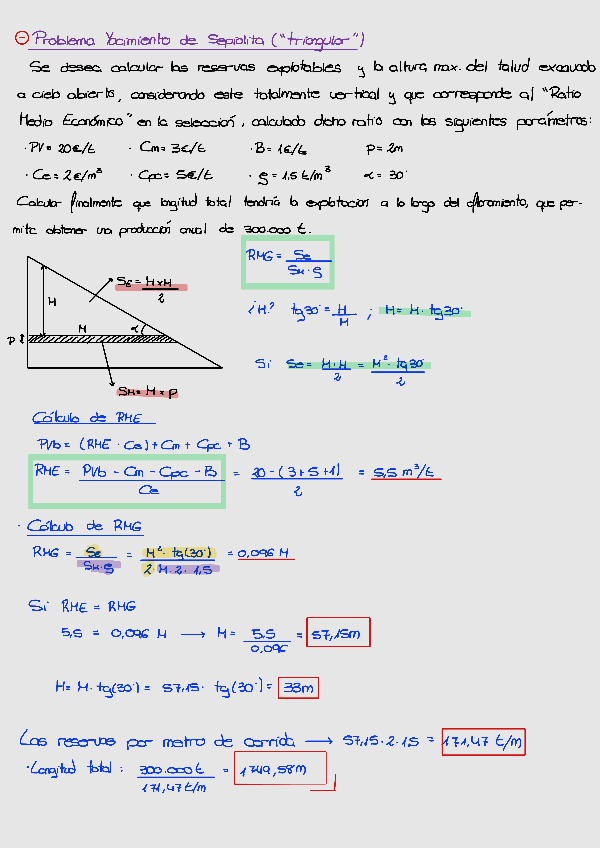 Problema Yacimiento de Sepiolita ("triangular")
Se desea calcular las reservas explotables y la altura max. del talud excavado
a cielo abierto, considerando este totalmente vertical y que corresponde al "Ratio
Medio Económico" en la selección, calculado dicho ratio con los siguientes parámetros:
· PV = 20€/t · Cm = 3€/t · B = 1€/t P = 2m
· Ce = 2€/m³ · Cpc = 5€/t · ρ = 1.5 t/m³ α = 30°
Calcular finalmente que longitud total tendría la explotación a lo largo del afloramiento, que per-
mita obtener una producción anual de 300.000 t.
RMG = Se / (Sm · ρ)
Se = M × H / 2
H
M
α
P
Sm = M × P
¿H? tg30° = H / M ; H = M · tg30°
Si Se = M · H / 2 = M² · tg30° / 2
Cálculo de RME
PVb = (RME · Ce) + Cm + Cpc + B
RME = (PVb - Cm - Cpc - B) / Ce = 20 - (3+5+1) / 2 = 5,5 m³/t
· Cálculo de RMG
RMG = Se / (Sm · ρ) = M² · tg(30°) / 2 · M · 2 · 1,5 = 0,096 M
Si RME = RMG
5,5 = 0,096 M ⟶ M = 5,5 / 0,096 = 57,15m
H = M · tg(30°) = 57,15 · tg(30°) = 33m
Las reservas por metro de corrida ⟶ 57,15 · 2 · 1,5 = 171,47 t/m
· Longitud total : 300.000 t / 171,47 t/m = 1749,58m